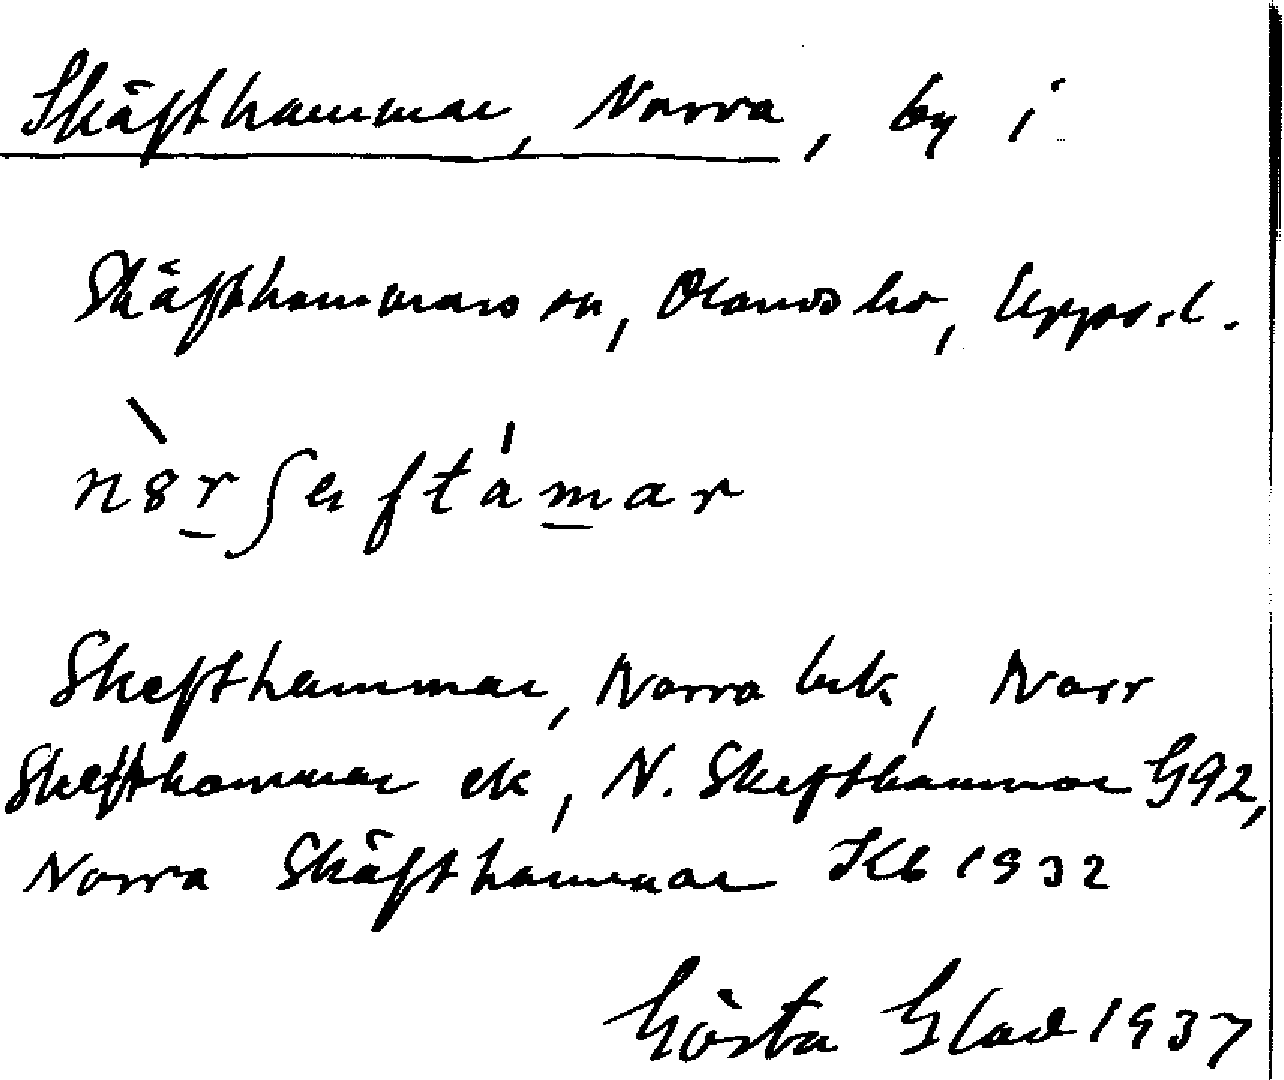 Skäfthammar, Norra, by i
Skäfthammars sn, Olands hd, Upps. l.
Skefthammar, Norra bek, Norr
Skefthammar ek, N. Skefthammar G92,
Norra Skäfthammar JKb 1932
Gösta Glad 1937